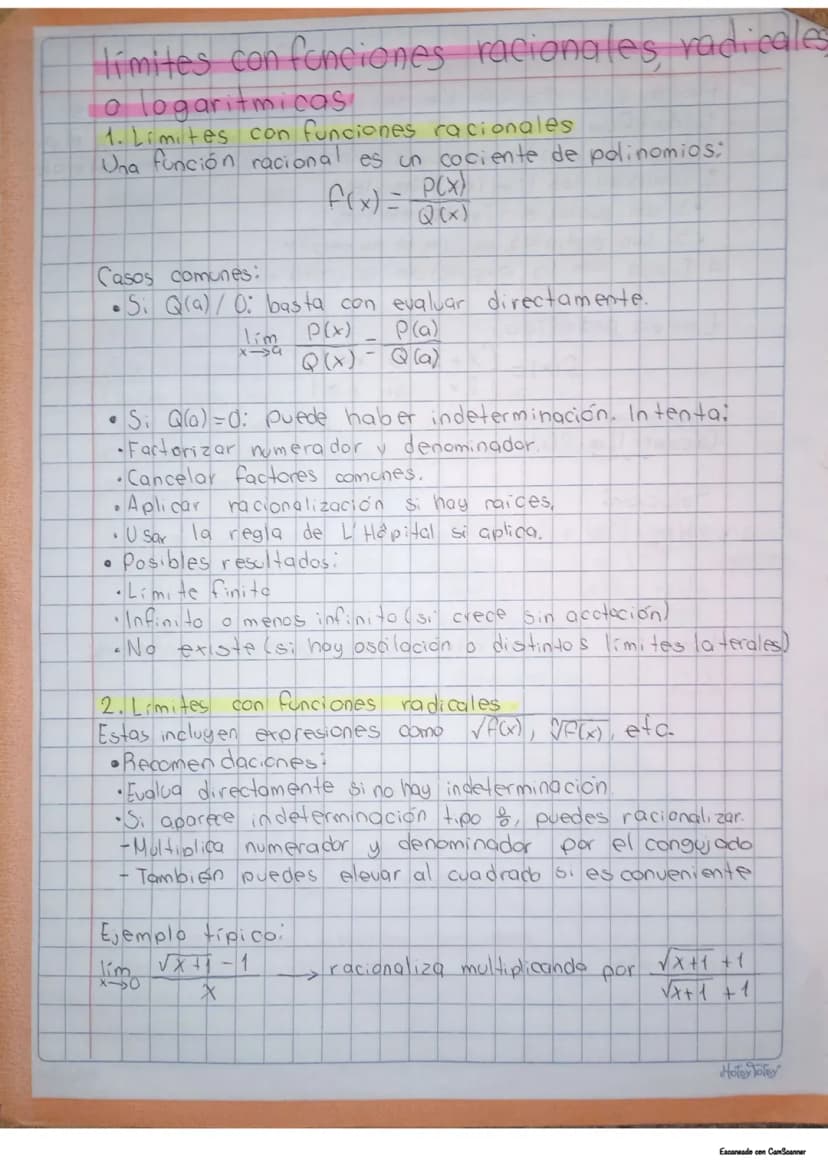 límites con funciones racionales, radicales
o logaritmicas
1. Límites con funciones racionales
Una función racional es un cociente de polinomios:
f(x) = P(x) / Q(x)
Casos comunes:
• Si Q(a) / 0: basta con evaluar directamente.
lim x→a P(x) / Q(x) = P(a) / Q(a)
• Si Q(a) = 0: puede haber indeterminación. Intenta:
· Factorizar numerador y denominador.
· Cancelar factores comunes.
· Aplicar racionalización si hay raíces,
· Usar la regla de L'Hôpital si aplica.
• Posibles resultados:
· Límite finito
· Infinito o menos infinito (si crece sin acotación)
· No existe (si hay oscilación o distintos límites laterales)
2. Límites con funciones radicales
Estas incluyen expresiones como √f(x), ∛f(x), etc.
• Recomendaciones:
· Evalúa directamente si no hay indeterminación
· Si aparece indeterminación tipo 0/0, puedes racionalizar.
- Multiplica numerador y denominador por el congujado
- También puedes elevar al cuadrado si es conveniente
Ejemplo típico:
lim x→0 (√x+1 - 1) / x → racionaliza multiplicando por (√x+1 + 1) / (√x+1 + 1)
Escaneado con CamScanner